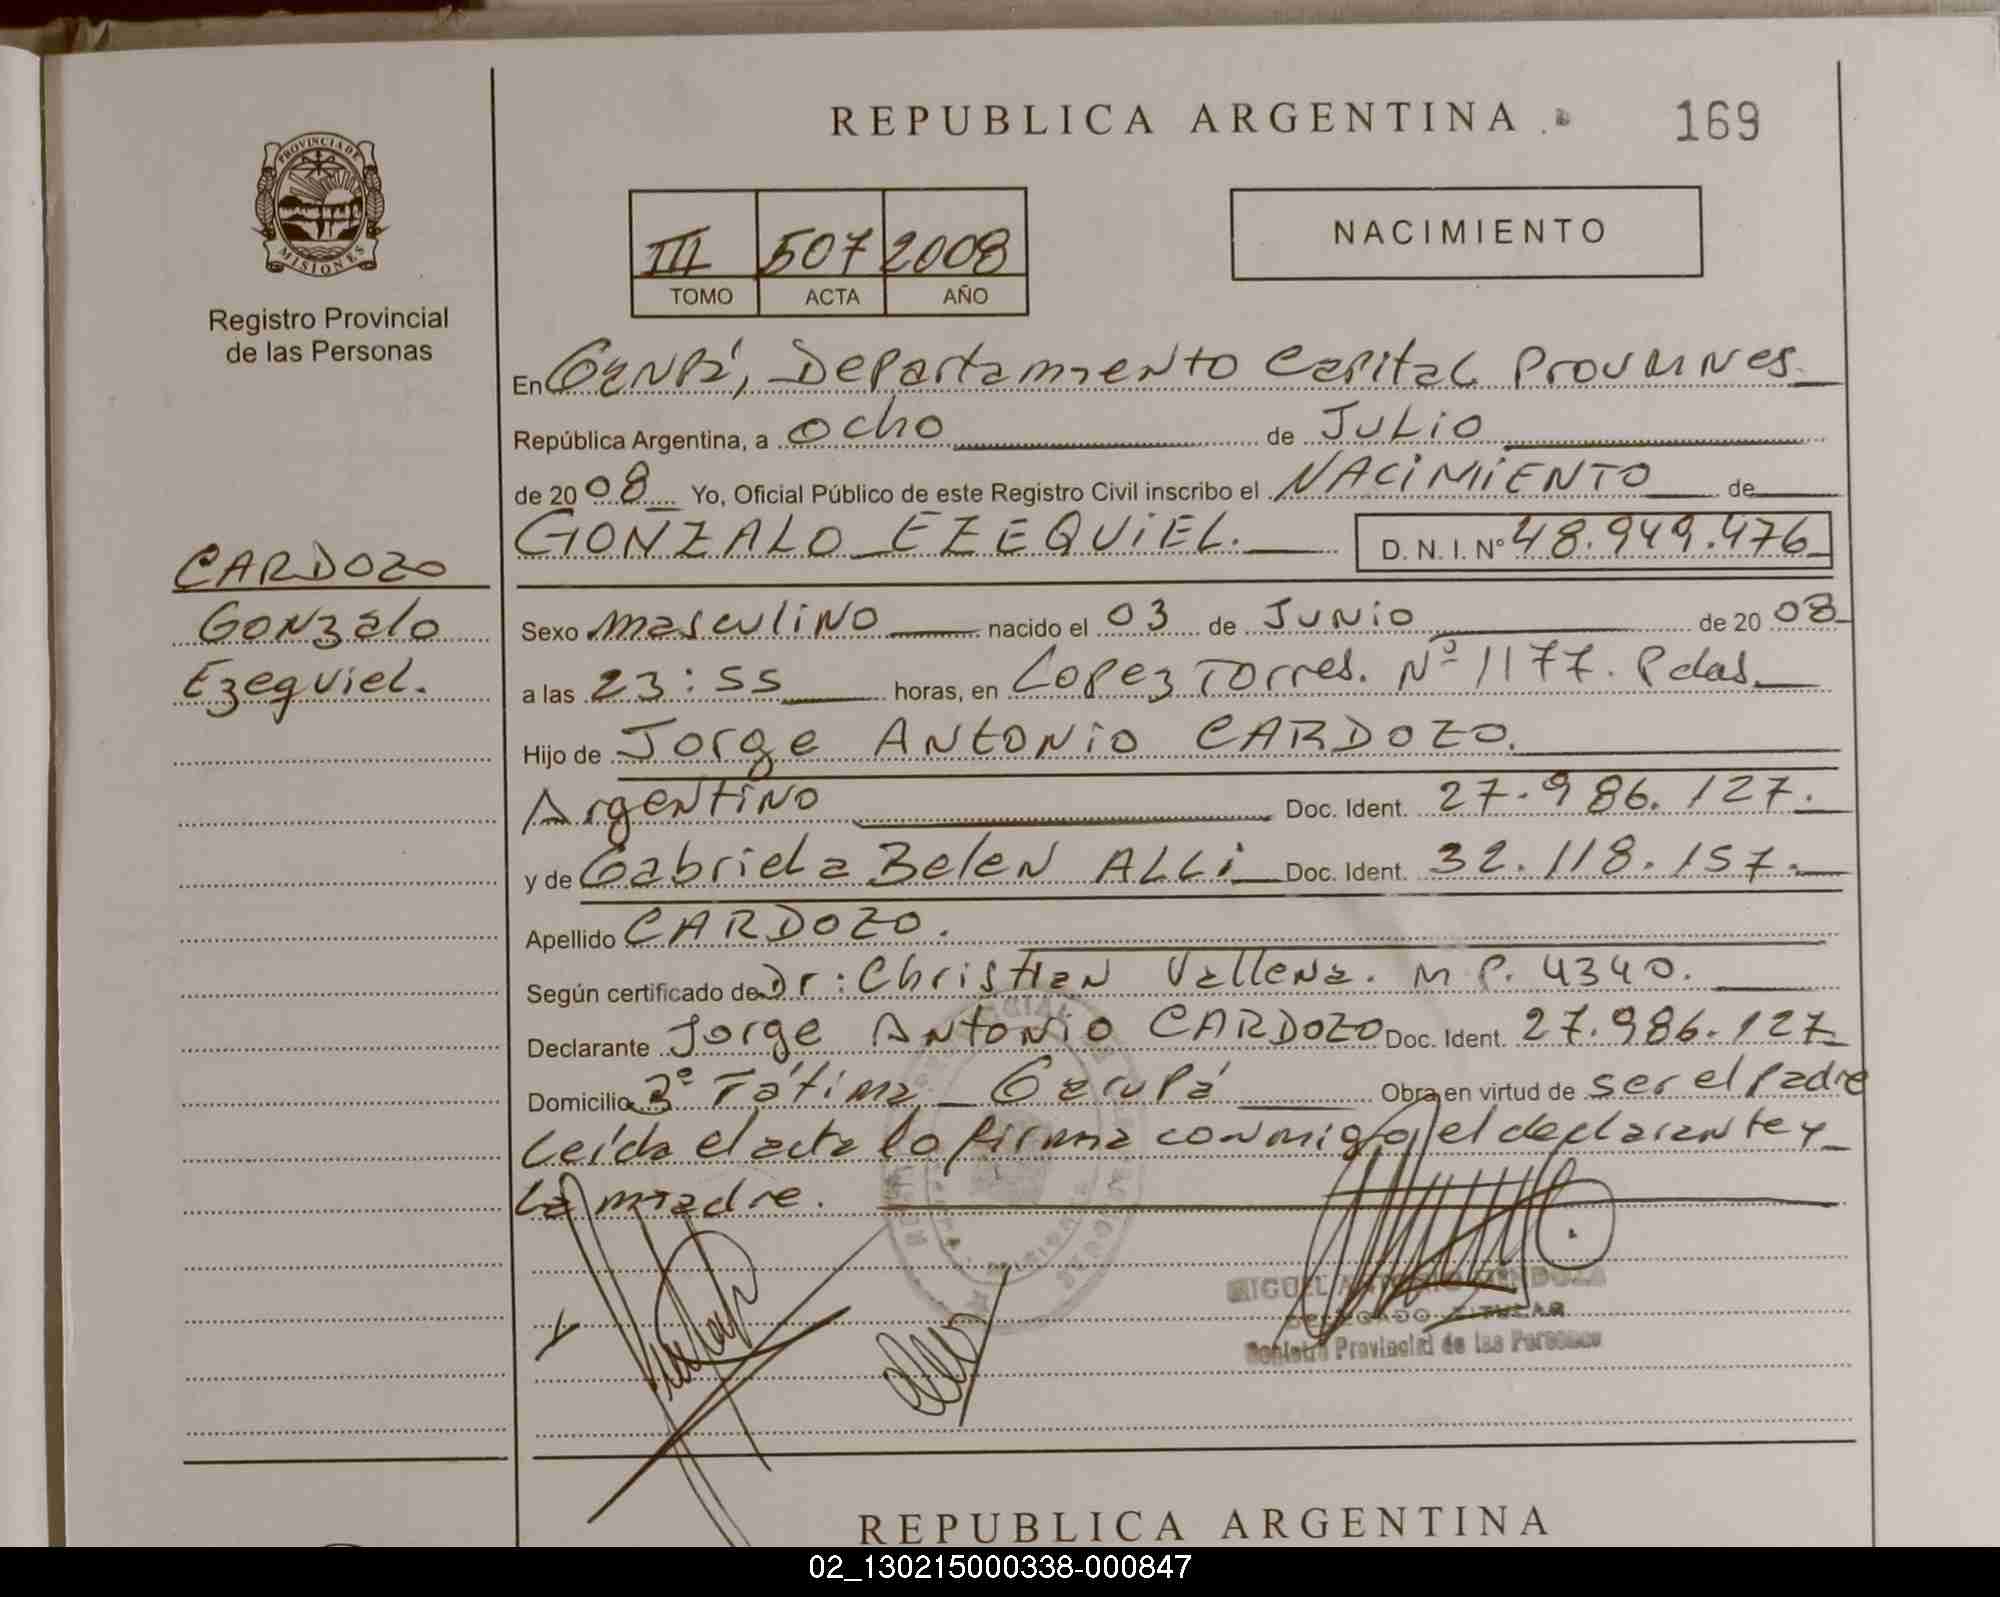 REPUBLICA ARGENTINA
169
PROVINCIA DE
MISIONES
Registro Provincial
de las Personas
III 507 2008
TOMO ACTA AÑO
NACIMIENTO
En Garupá, Departamento Capital
República Argentina, a ocho de Julio
de 2008 Yo, Oficial Público de este Registro Civil inscribo el NACIMIENTO de
GONZALO EZEQUIEL. D. N. I. Nº 48.949.476
CARDOZO
Gonzalo
Ezequiel.
Sexo masculino nacido el 03 de Junio de 2008
a las 23:55 horas, en Lopez Torres. Nº 1177. Pdas.
Hijo de Jorge ANtONio CARDOZO.
Argentino Doc. Ident. 27.986.127.
y de Gabriela Belen ALLi Doc. Ident. 32.118.157.
Apellido CARDOZO.
Según certificado de Dr: Christian Vallena. M P. 4340.
Declarante Jorge ANtONio CARDOZO Doc. Ident. 27.986.127
Domicilio Bº Fátima Garupá Obra en virtud de ser el padre
Leída el acta lo firma conmigo el declarante y
La madre.
MIGUEL ANTONIO MENDOZA
DELEGADO TITULAR
Registro Provincial de las Personas
REPUBLICA ARGENTINA
02_130215000338-000847